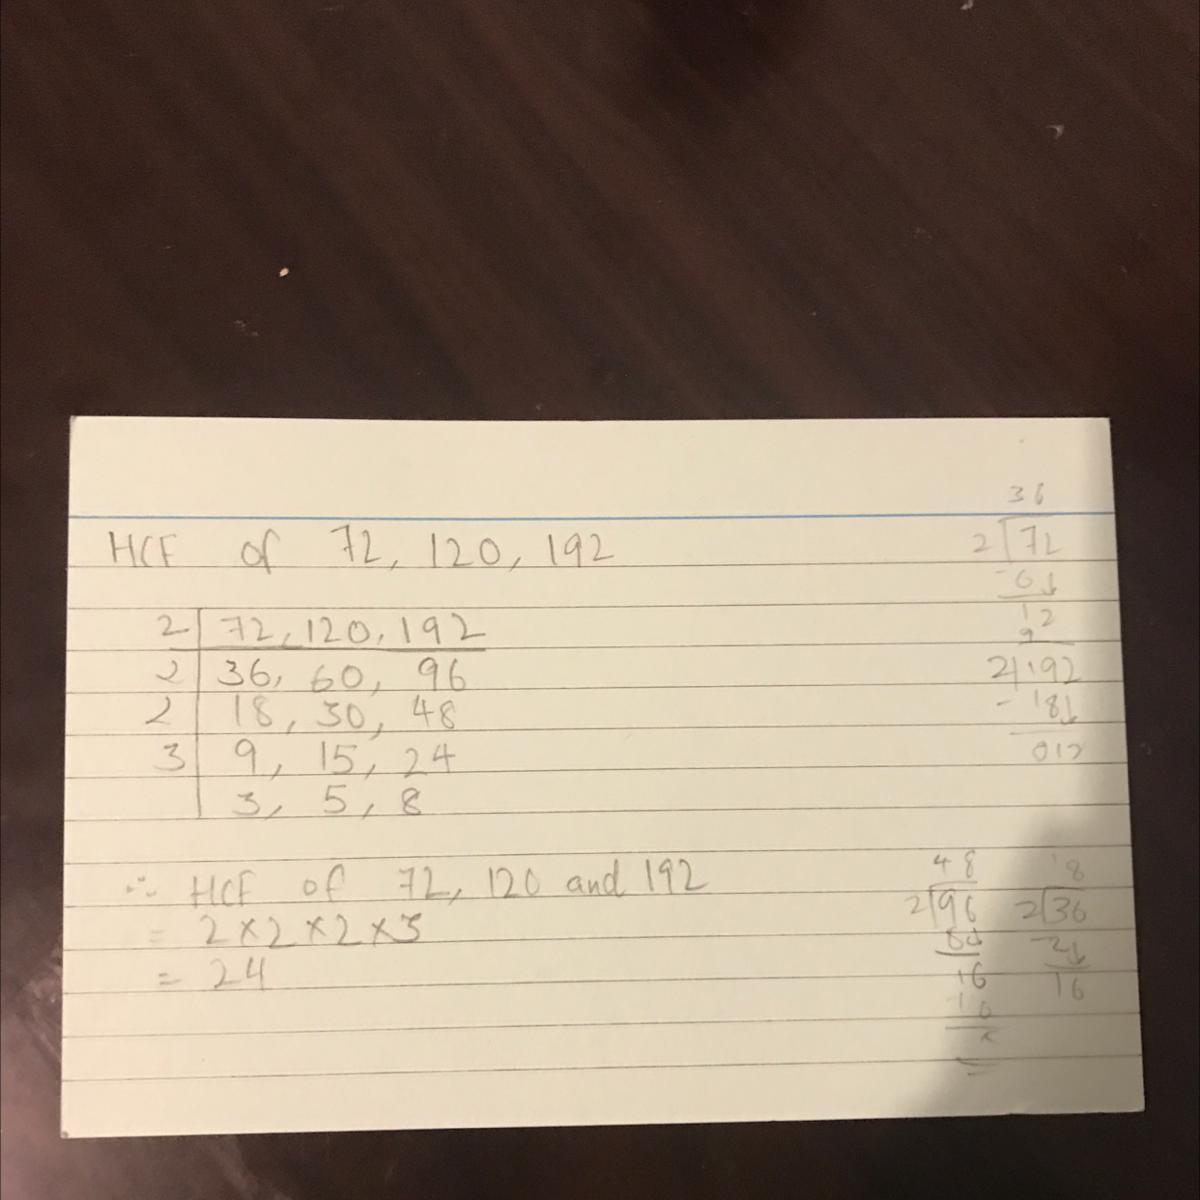 HCF of 72, 120, 192
2 | 72, 120, 192
2 | 36, 60, 96
2 | 18, 30, 48
3 | 9, 15, 24
3, 5, 8
∴ HCF of 72, 120 and 192
= 2 × 2 × 2 × 3
= 24
36
2 72
- 6↓
12
9
2 192
- 18↓
012
48
2 96
8↓
16
- 16
×
18
2 36
- 2↓
16